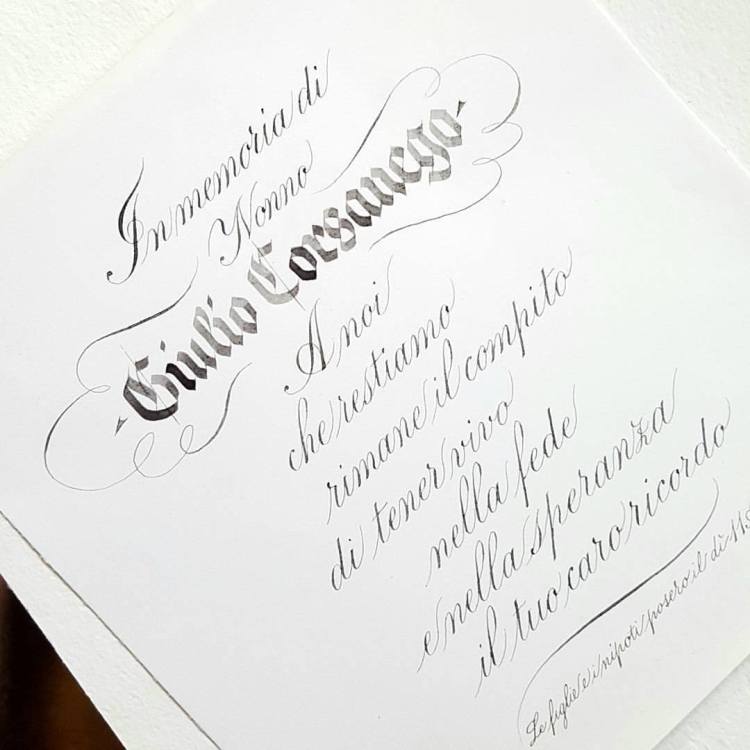 In memoria di
Nonno
Giulio Corsanego
A noi
che restiamo
rimane il compito
di tener vivo
nella fede
e nella speranza
il tuo caro ricordo
Le figlie e i nipoti posero il dì